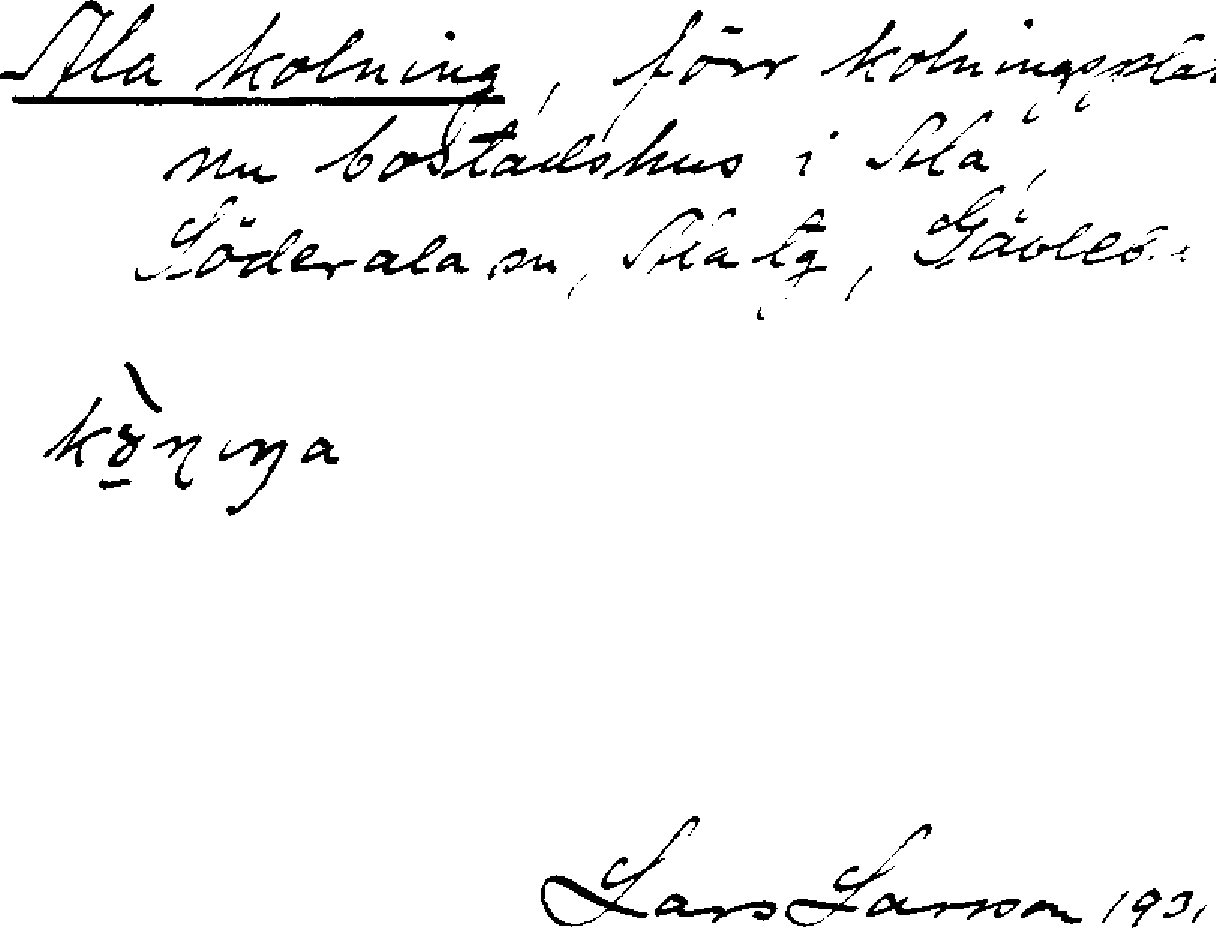 Ala kolning, förr kolningsplat
nu bostadshus i Ala,
Söderala sn, Ala tg, Gävleb.
Lars Larsson 1931